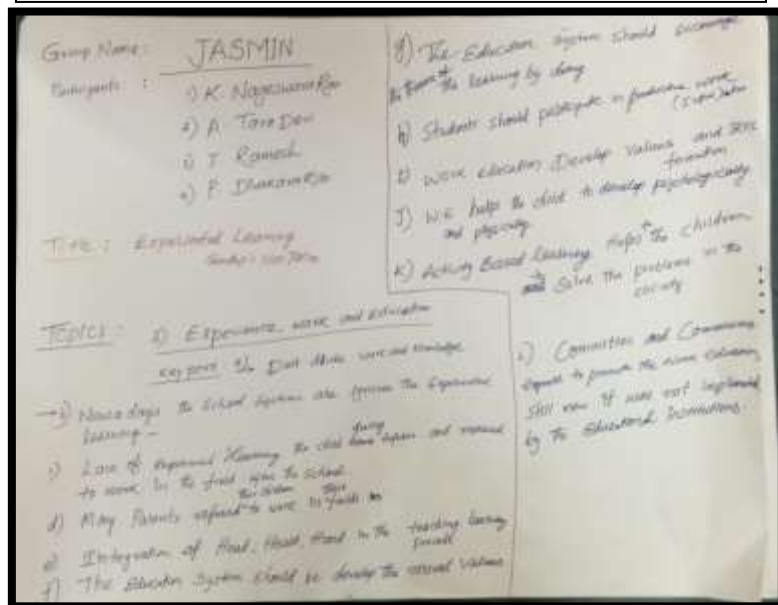 Group Name: JASMIN
Participants : 1) K. Nageswara Rao
2) A. Tara Devi
3) T. Ramesh
4) P.
Title: Experiential Learning
Topics: a) Experience, work and Education
key point
→ b) Now a days the School system are the Experiential
learning -
c) Lack of learning the child and
to work in the field after the School.
d) Many Parents refused to work in fields
the children their
e) Integration of Head, Heart, Hand in the teaching learning
process
f) The Education System should be develop the moral values
g) The Education system should encourage
the learning by doing
h) Students should participate in productive work
i) Work education Develop values and
formation
J) W.E helps the child to develop psychologically
and physically
K) Activity Based Learning helps the children
to Solve the problems in the
society
L) Committees and Commissions
to promote the work education
still now it was not implemented
by the Educational Institutions.